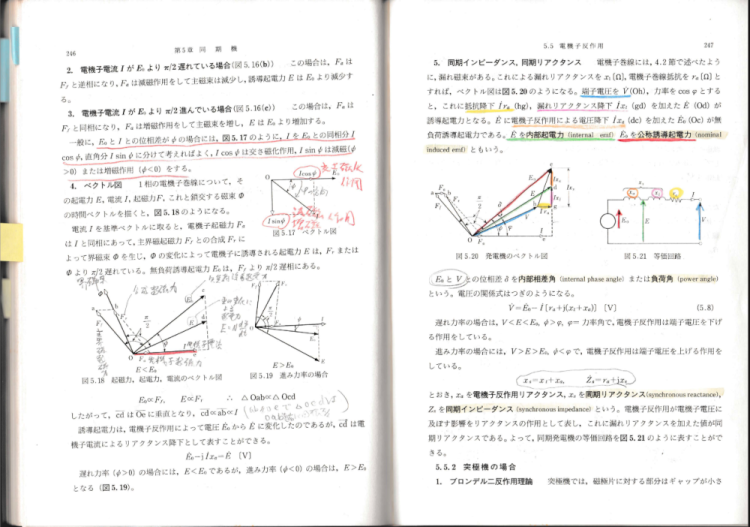 246
第5章 同期機
2. 電機子電流 I が E₀ より π/2 遅れている場合(図5.16(b)) この場合は, Fₐ は
F_f と逆相になり, Fₐ は減磁作用をして主磁束は減少し, 誘導起電力 E は E₀ より減少す
る。
3. 電機子電流 I が E₀ より π/2 進んでいる場合(図5.16(c)) この場合は, Fₐ は
F_f と同相になり, Fₐ は増磁作用をして主磁束を増し, E は E₀ より増加する。
一般に, E₀ と I との位相差が ψ の場合には, 図5.17 のように, I を E₀ との同相分 I
cos ψ, 直角分 I sin ψ に分けて考えればよく, I cos ψ は交さ磁化作用, I sin ψ は減磁(ψ
>0) または増磁作用 (ψ<0) をする。
4. ベクトル図 1相の電機子巻線について, そ
の起電力 E, 電流 I, 起磁力 F, これと鎖交する磁束 Φ
の時間ベクトルを描くと, 図5.18 のようになる。
電流 I を基準ベクトルに取ると, 電機子起磁力 Fₐ
は I と同相にあって, 主界磁起磁力 F_f との合成 F_r に
よって界磁束 Φ を生じ, Φ の変化によって電機子に誘導される起電力 E は, F_r または
Φ より π/2 遅れている。無負荷誘導起電力 E₀ は, F_f より π/2 遅相にある。
I cos ψ
I sin ψ
図5.17 ベクトル図
E<E₀
図5.18 起磁力, 起電力, 電流のベクトル図
E>E₀
図5.19 進み力率の場合
E₀∝F_f, E∝F_r ∴ △Oab∽△Ocd
したがって, cd は Oe に垂直となり, cd∝ab∝I
誘導起電力は, 電機子反作用によって電圧 E₀ から E に変化したのであるが, cd は電
機子電流によるリアクタンス降下として表すことができる。
Ė₀−jİxₐ=Ė [V]
遅れ力率 (ψ>0) の場合には, E<E₀ であるが, 進み力率 (ψ<0) の場合は, E>E₀
となる (図5.19)。
5.5 電機子反作用
247
5. 同期インピーダンス, 同期リアクタンス 電機子巻線には, 4.2節で述べたよう
に, 漏れ磁束がある。これによる漏れリアクタンスを xₗ[Ω], 電機子巻線抵抗を rₐ[Ω] と
すれば, ベクトル図は図5.20 のようになる。端子電圧を V̇(Oh), 力率を cos φ とする
と, これに抵抗降下 İrₐ (hg), 漏れリアクタンス降下 İxₗ (gd) を加えた Ė (Od) が
誘導起電力となる。Ė に電機子反作用による電圧降下 İxₐ (dc) を加えた Ė₀ (Oc) が無
負荷誘導起電力である。Ė を内部起電力 (internal emf) Ė₀ を公称誘導起電力 (nominal
induced emf) ともいう。
図5.20 発電機のベクトル図
図5.21 等価回路
Ė₀ と V̇ との位相差 δ を内部相差角 (internal phase angle) または負荷角 (power angle)
という。電圧の関係式はつぎのようになる。
V̇=Ė₀−İ[rₐ+j(xₗ+xₐ)] [V] (5.8)
遅れ力率の場合は, V<E<E₀, ψ>φ, φ= 力率角で, 電機子反作用は端子電圧を下げ
る作用をしている。
進み力率の場合には, V>E>E₀, ψ<φ で, 電機子反作用は端子電圧を上げる作用を
している。
xₛ=xₗ+xₐ, Żₛ=rₐ+jxₛ
とおき, xₐ を電機子反作用リアクタンス, xₛ を同期リアクタンス(synchronous reactance),
Zₛ を同期インピーダンス (synchronous impedance) という。電機子反作用が電機子電圧に
及ぼす影響をリアクタンスの作用として表し, これに漏れリアクタンスを加えた値が同
期リアクタンスである。よって, 同期発電機の等価回路を図5.21 のように表すことがで
きる。
5.5.2 突極機の場合
1. ブロンデル二反作用理論 突極機では, 磁極片に対する部分はギャップが小さ